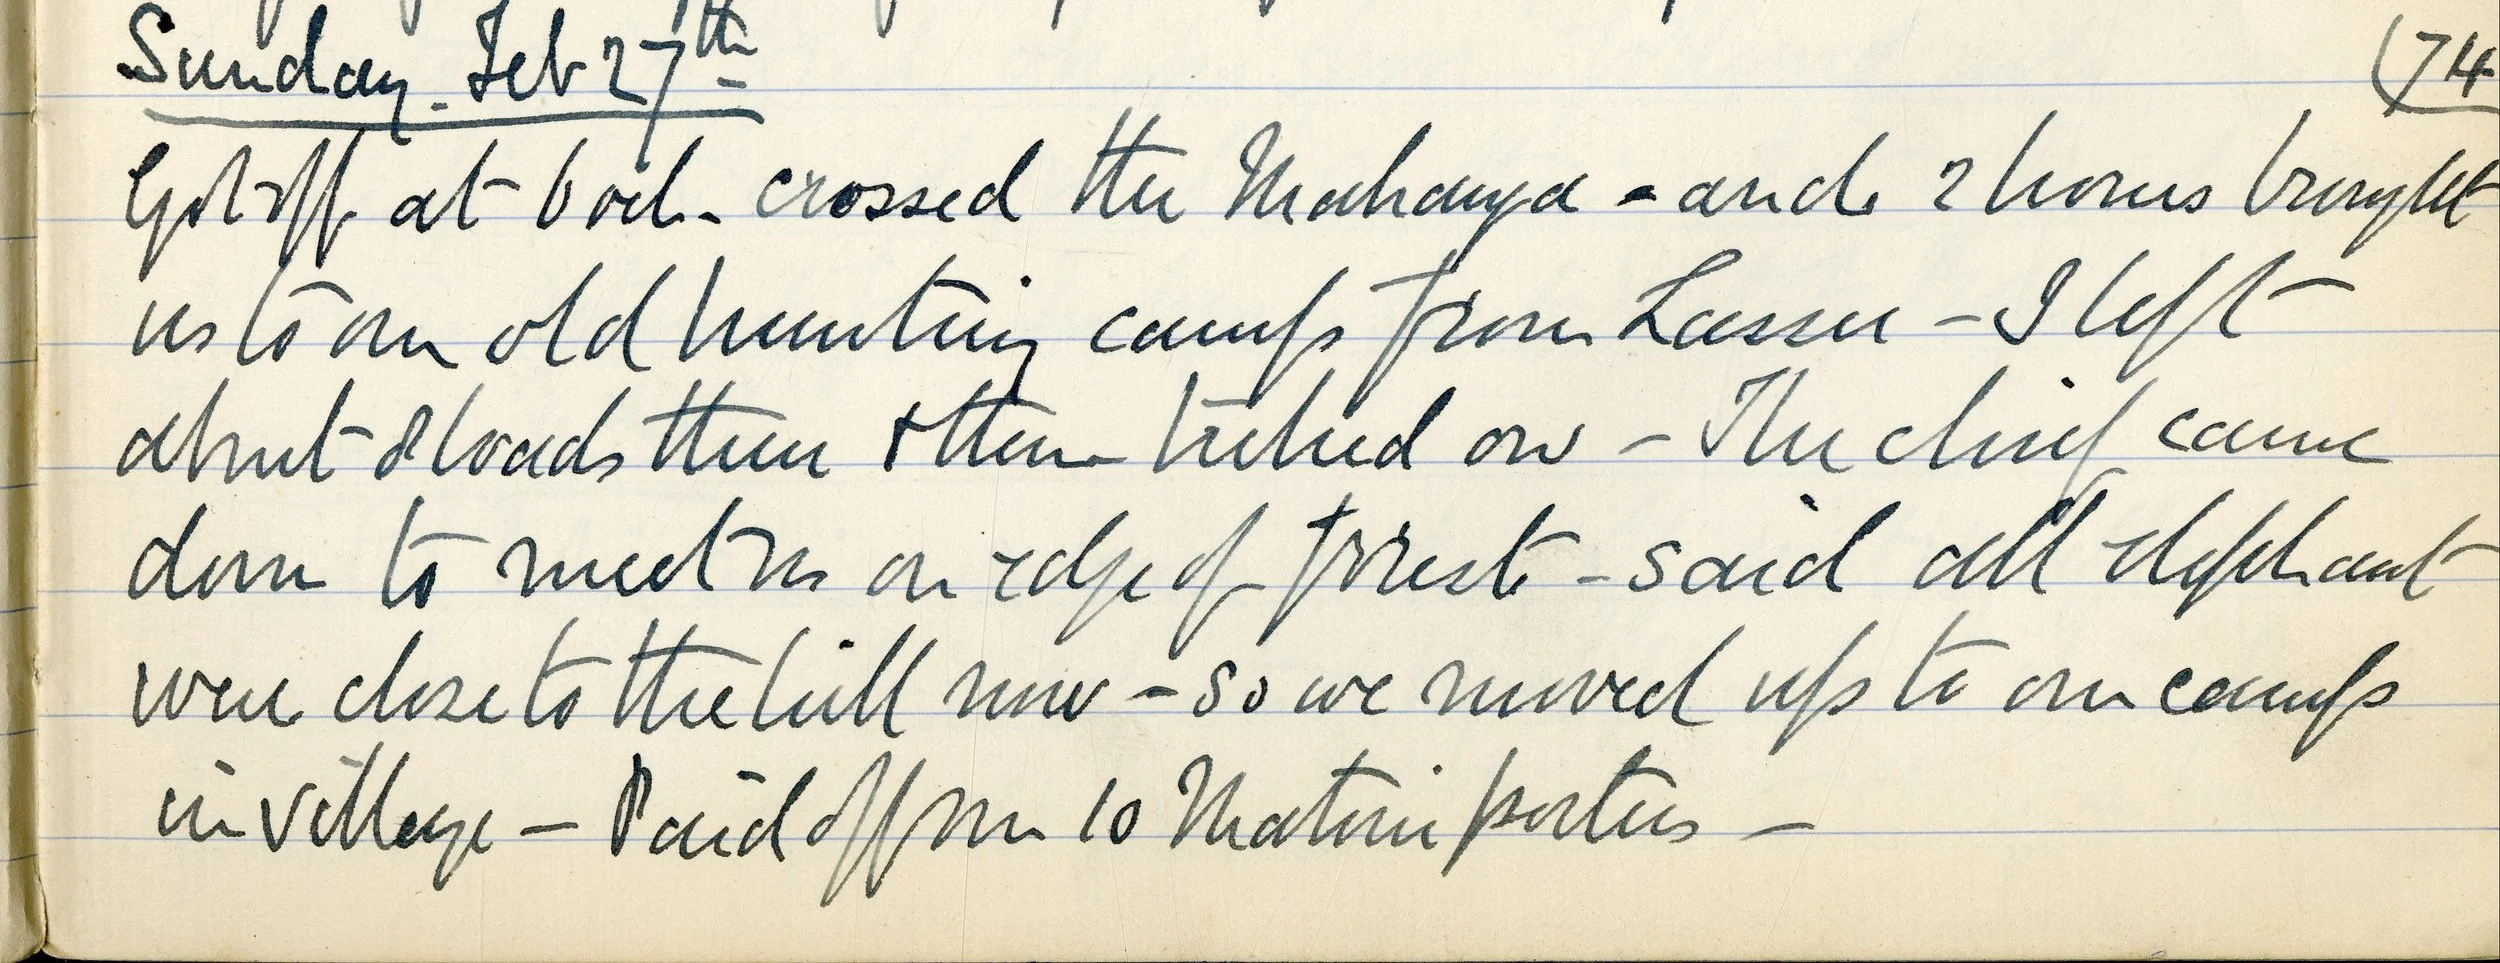 Sunday. Feb 27th
(74
Got off at 6 ock - crossed the Mahanga - and 2 hours brought
us to our old hunting camp from Lassu - I left
about 8 loads there & then treked on - The chief came
down to meet us on edge of forest - said all elephant
were close to the hill now - so we moved up to our camp
in village - Paid off our 10 Matoni porters -